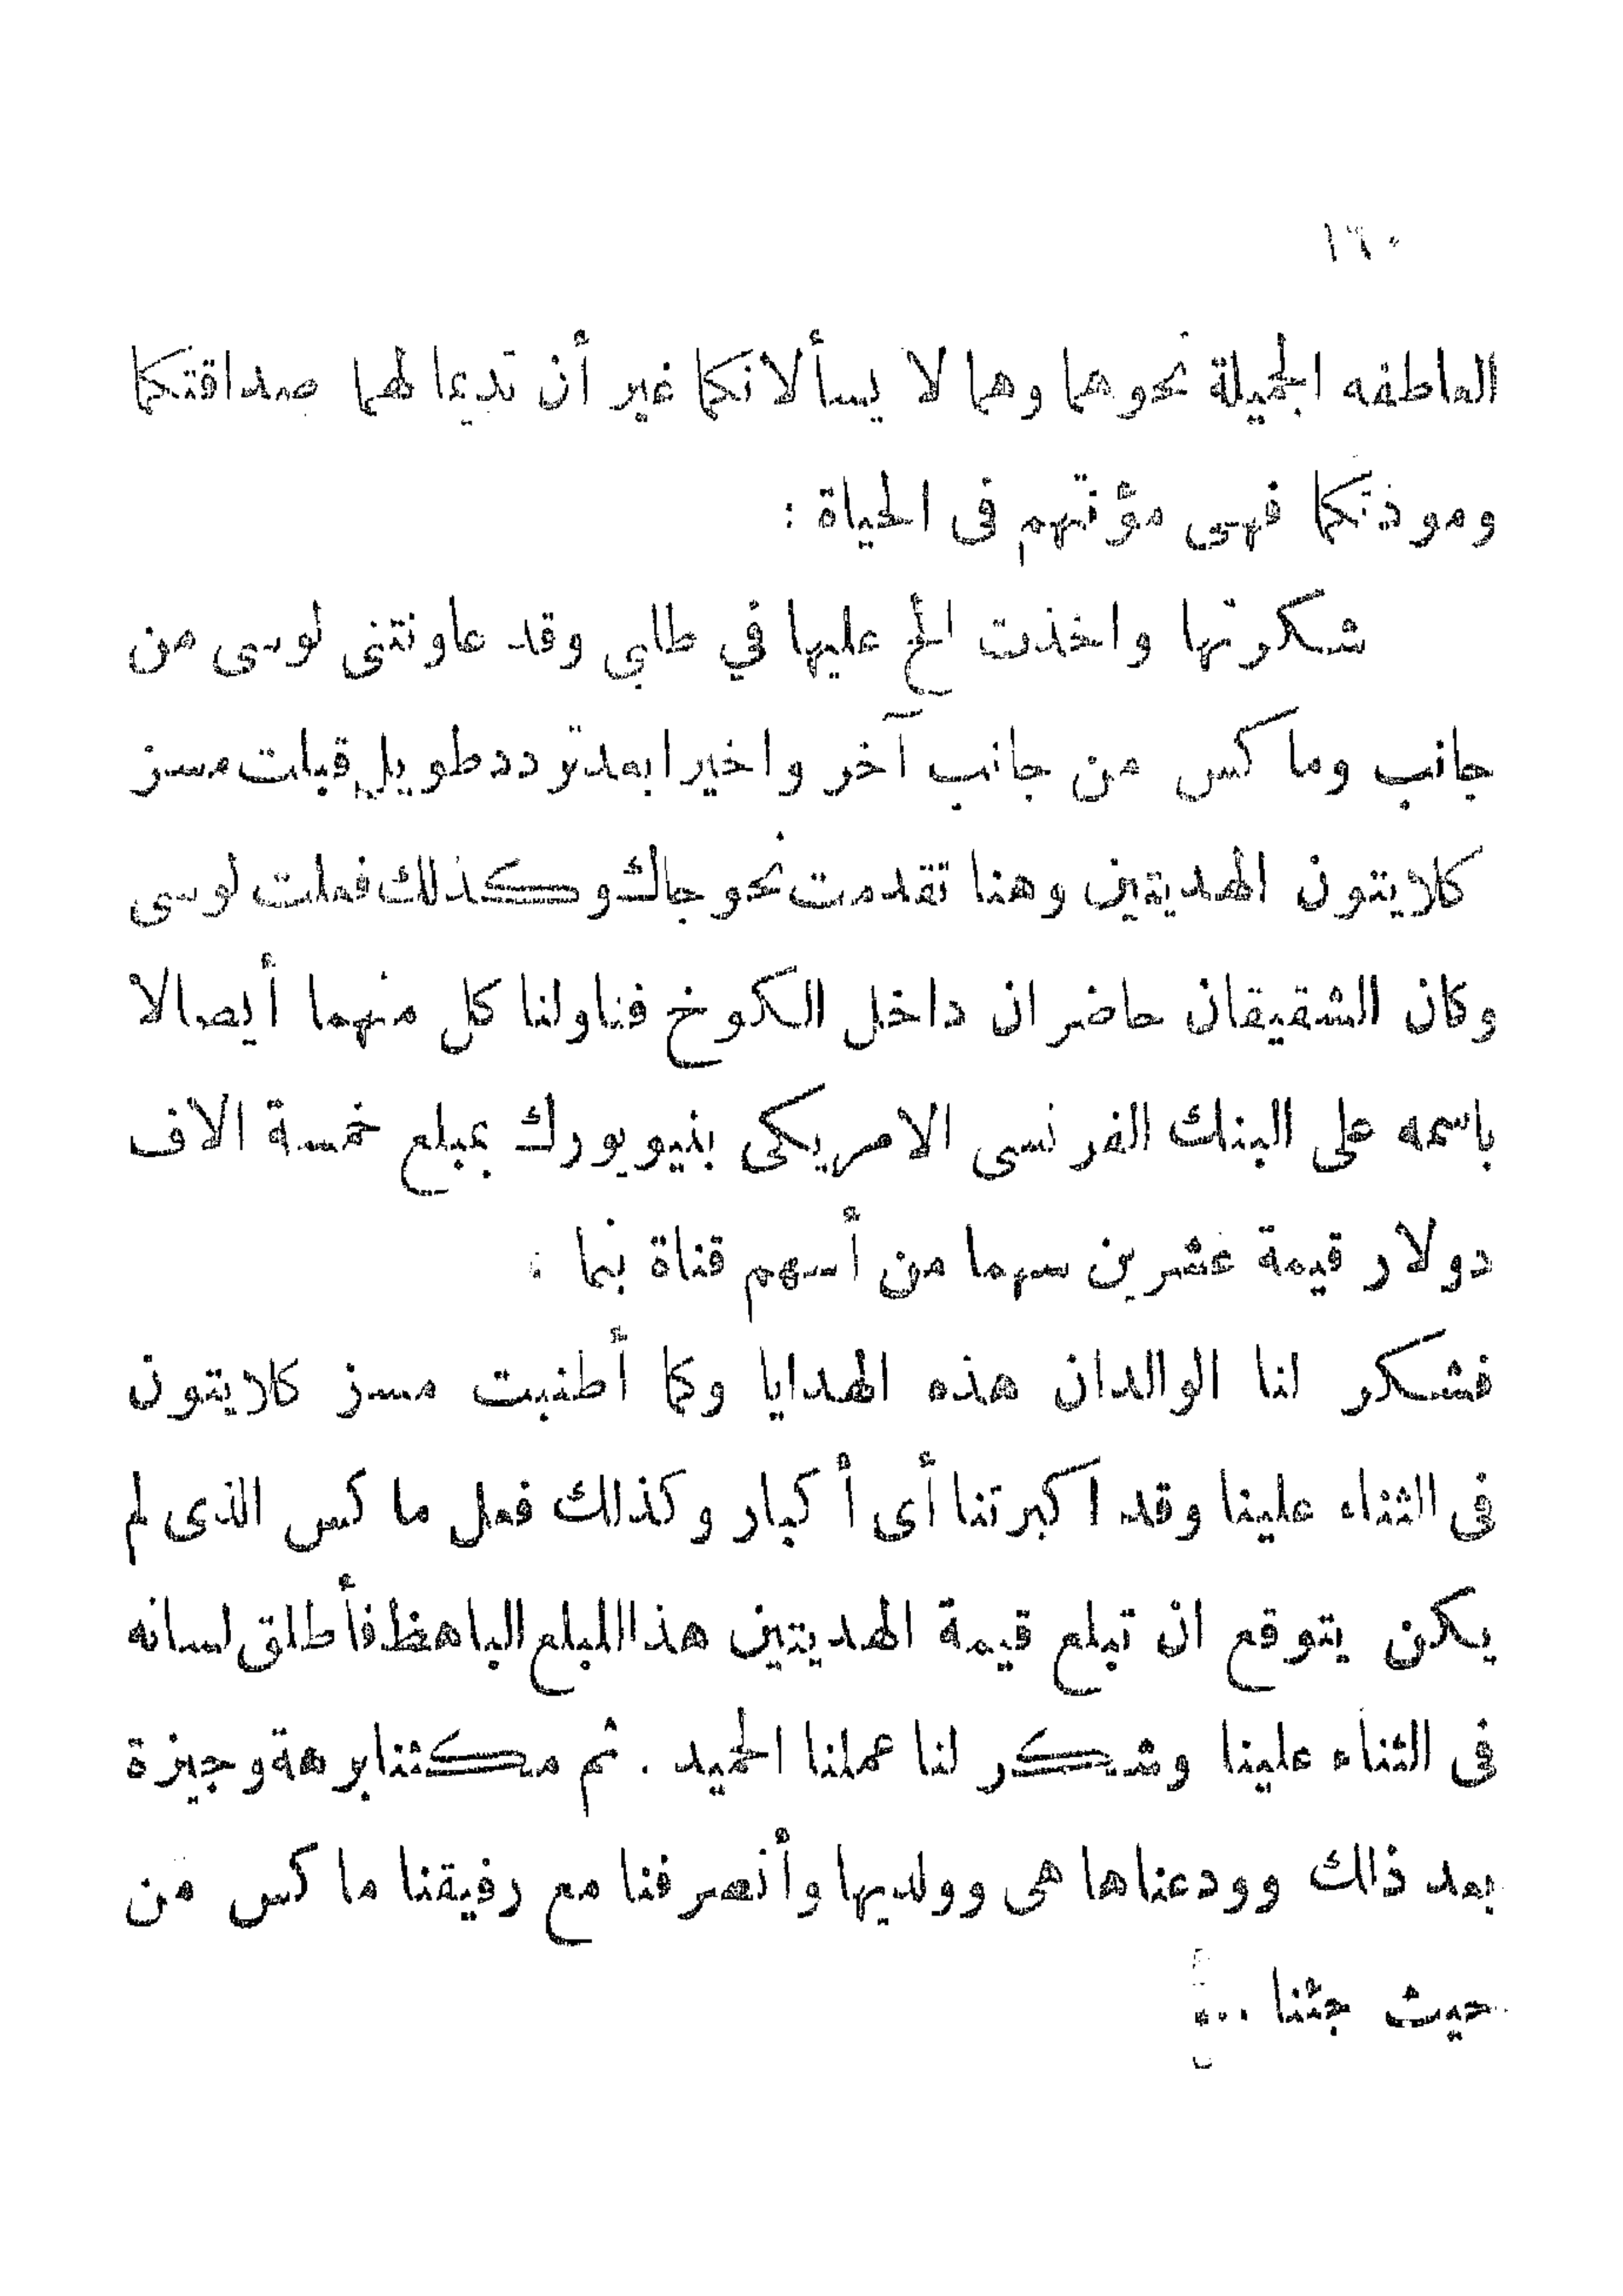 ١٦٠
العاطفه الجميلة نحوهما وهما لا يسألانكما غير أن تديما لهما صداقتكما
ومودتكما فهى مؤنتهم فى الحياة :
شكرتها واخذت الح عليها في طلبي وقد عاونتنى لوسى من
جانب وماكس من جانب آخر واخيرا بعد تردد طويل قبلت مسز
كلايتون الهديتين وهنا تقدمت نحو جاك وكذلك فعلت لوسى
وكان الشقيقان حاضران داخل الكوخ فناولنا كل منهما أيصالا
باسمه على البنك الفرنسى الامريكى بنيويورك بمبلغ خمسة الاف
دولار قيمة عشرين سهما من أسهم قناة بنما :
فشكر لنا الوالدان هذه الهدايا وكما أطنبت مسز كلايتون
فى الثناء علينا وقد اكبرتنا أى أكبار وكذلك فعل ماكس الذى لم
يكن يتوقع ان تبلغ قيمة الهديتين هذا المبلغ الباهظ فأطلق لسانه
فى الثناء علينا وشكر لنا عملنا الحميد . ثم مكثنا برهة وجيزة
بعد ذلك وودعناها هى وولديها وأنصرفنا مع رفيقنا ماكس من
حيث جئنا ...